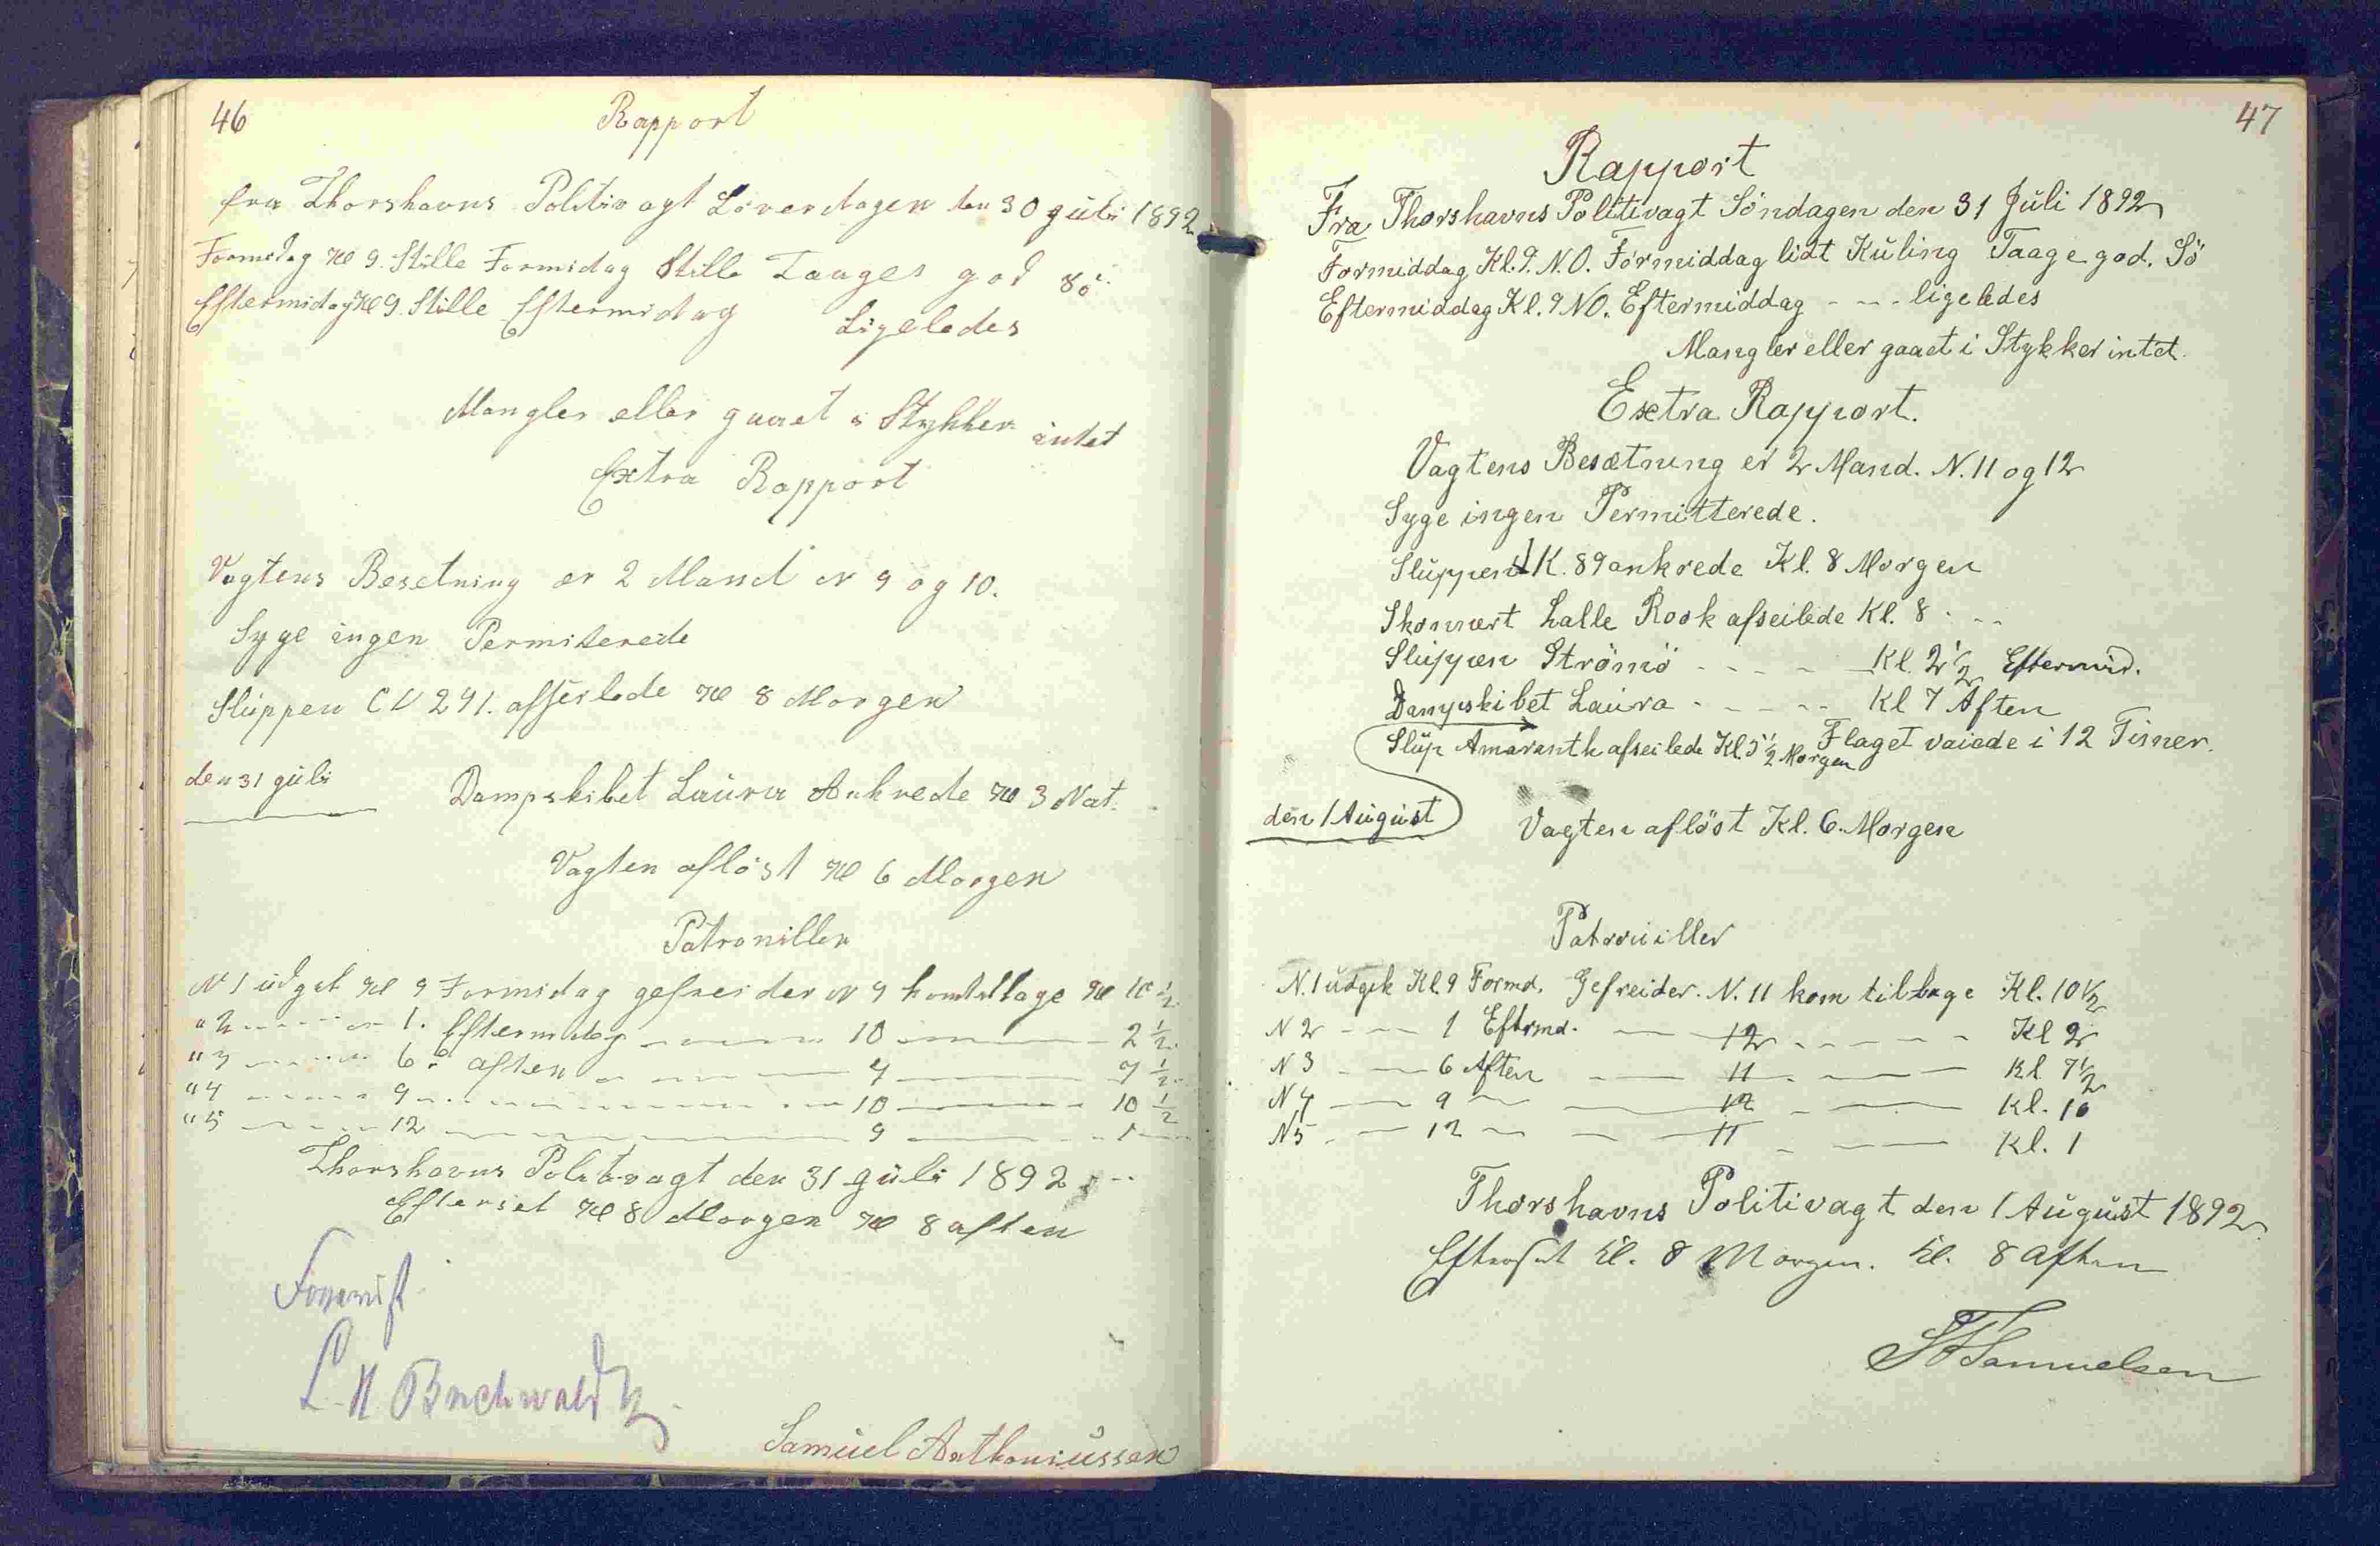 46
Rapport
fra Thorshavns Politivagt Löverdagen den 30 Juli 1892
Formidag Kl 9. Stille Formidag Stille Taages god Sö
Eftermidag Kl 9. Stille Eftermidag Ligeledes
Mangler eller gaaet i Stykker intet
Extra Rapport
Vagtens Besetning er 2 Mand N 9 og 10.
Syge ingen Permiterede
Sluppen 241. afseilede Kl 8 Morgen
den 31 Juli Dampskibet Laura Ankrede Kl 3 Nat.
Vagten aflöst Kl 6 Morgen
Patroniller
N 1 udgik Kl 9 Formidag gefreider N 9 kom Kl 10 1/2
" 2 1. Eftermidag 10 2 1/2
" 3 6. aften 9 7 1/2
" 4 9 10 10 1/2
" 5 12 9 1
Thorshavns Politivagt den 31 Juli 1892
Efterset Kl 8 Morgen Kl 8 aften
L. N Buchwaldt
Samuel Anthoniussen
47
Rapport
Fra Thorshavns Politivagt Söndagen den 31 Juli 1892
Formiddag Kl. 9. N.O. Formiddag lidt Kuling Taage god. Sö
Eftermiddag Kl. 9 NO. Eftermiddag - - - ligeledes
Mangler eller gaaet i Stykker intet.
Extra Rapport.
Vagtens Besætning er 2 Mand. N. 11 og 12
Syge ingen Permitterede.
Sluppen K. 89 ankrede Kl. 8 Morgen
Skonnert Lalle Rook afseilede Kl. 8 - - -
Sluppen Strömö - - - - Kl. 2 1/2 Eftermid.
Dampskibet Laura - - - - - Kl 7 Aften
Slup Amaranth afseilede Kl. 5 1/2 Morgen Flaget vaiede i 12 Timer.
den 1 August Vagten aflöst Kl. 6. Morgen
Patrouiller
N. 1 udgik Kl. 9 Formd. Gefreider. N. 11 kom tilbage Kl. 10 1/2
N 2 - - - 1 Eftrmd. - 12 - - - - - Kl 2
N 3 - - - 6 Aften - 11 - - - Kl 7 1/2
N 4 - - 9 - - 12 - - - Kl. 10
N 5 - - 12 - - 11 - - - Kl. 1
Thorshavns Politivagt den 1 August 1892
Efterset kl. 8 Morgen. kl. 8 Aften
Samuelsen